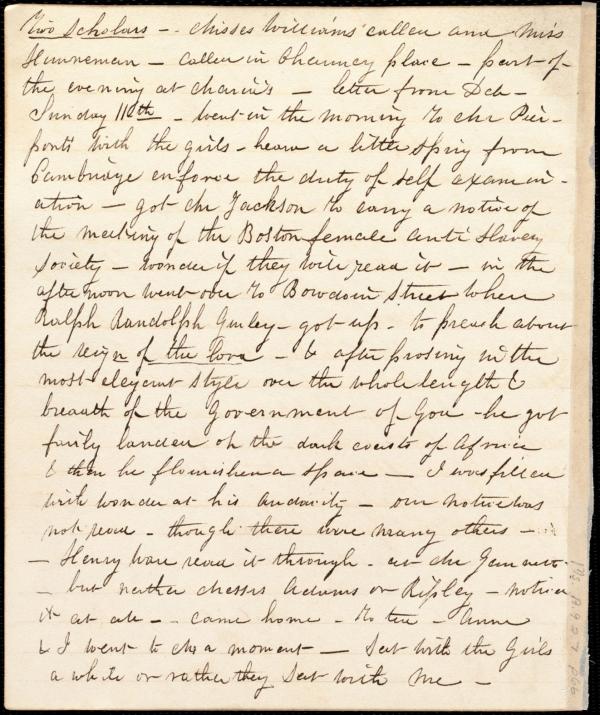 Two Scholars - Misses Williams called and Miss
Hunneman - called in Chauncy place - part of
the evening at Maria's - letter from Deb -
Sunday 11th - went in the morning to Mr Pier-
ponts with the girls - heard a little sprig from
Cambridge enforce the duty of self examin-
ation - got Mr Jackson to carry a notice of
the meeting of the Boston female anti Slavery
Society - wonder if they will read it - in the
afternoon went over to Bowdoin Street where
Ralph Randolph Gurley - got up - to preach about
the reign of the Lord - & after prosing in the
most elegant style over the whole length &
breadth of the Government of God - he got
fairly landed on the dark coasts of Africa
& then he flourished a space - I was filled
with wonder at his audacity - our notice was
not read - though there were many others -
- Henry Ware read it through - at Mr Gannett
- but neither Messrs Adams or Ripley - notice
it at all - came home - to tea - Anne
& I went to a moment - Sat with the Girls
a while or rather they Sat with me -